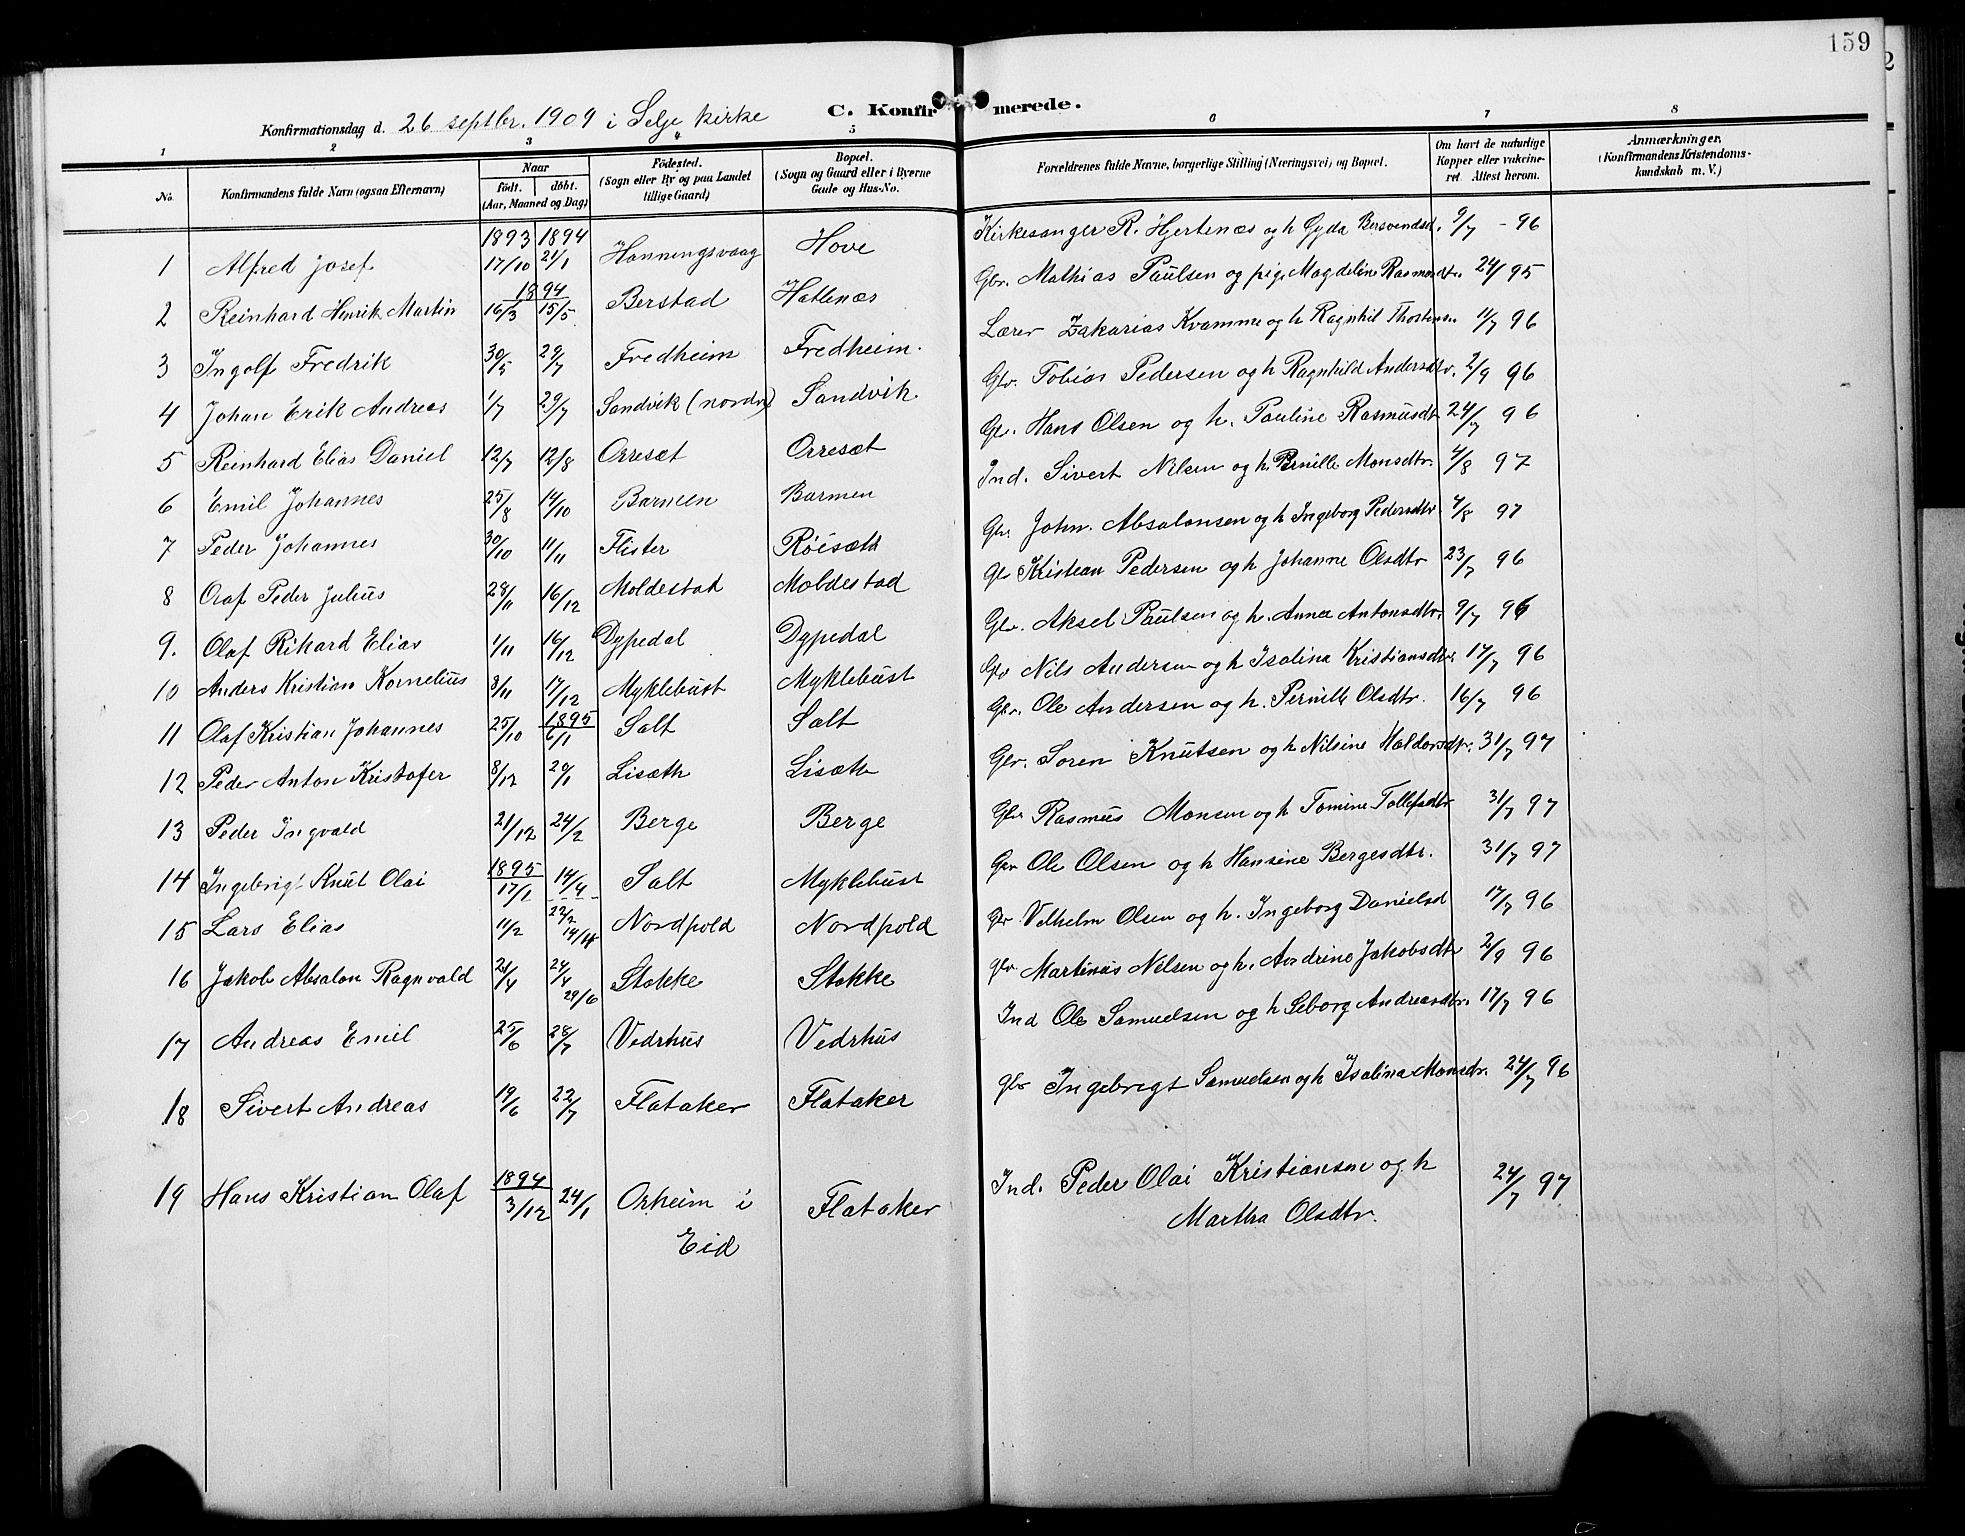 159
C. Konfirmerede.
Konfirmationsdag d. 26 septbr. 1909 i Selje kirke
1 2 3 4 5 6 7 8
No. Konfirmandens fulde Navn (ogsaa Efternavn) Naar födt. döbt. (Aar, Maaned og Dag) Födested. (Sogn eller By og paa Landet tillige Gaard) Bopæl. (Sogn og Gaard eller i Byerne Gade og Hus-No. Forældrenes fulde Navne, borgerlige Stilling (Næringsvei) og Bopæl. Om havt de naturlige Kopper eller vakcineret. Attest herom. Anmærkninger. (Konfirmandens Kristendomskundskab m. V.)
1 Alfred Josef 1893 17/10 1894 21/1 Honningsvaag Hove Kirkesanger R. Hjertenæs og h Gyda Bersvendsd. 9/7 - 96
2 Reinhard Henrik Martin 1894 16/3 15/5 Berstad Hatlenæs Gbr. Mathias Paulsen og pige Magdeline Rasmusdtr. 24/7 95
3 Ingolf Fredrik 30/5 29/7 Fredheim Fredheim. Lærer Zakarias Kvamme og h Ragnhil Thostens 11/7 96
4 Johan Erik Andreas 1/7 29/7 Sandvik (nordre) Sandvik. Gbr. Tobias Pedersen og h Ragnhild Andersdtr. 2/9 96
5 Reinhard Elias Daniel 12/7 12/8 Orreset Orreset Gbr. Hans Olsen og h. Pauline Rasmusdt 24/7 96
6 Emil Johannes 25/8 14/10 Barmen Barmen Ind. Sivert Nilsen og h. Pernille Monsdtr. 4/8 97
7 Peder Johannes 30/10 11/11 Flister Röisæth Gbr. John. Absalonsen og h Ingeborg Pedersdtr 4/8 97
8 Olaf Peder Julius 28/11 16/12 Moldestad Moldestad Gbr Kristian Pedersen og h Johanne Olsdtr 23/7 96
9. Olaf Rikard Elias 1/11 16/12 Dypedal Dypedal Gbr. Aksel Paulsen og h. Anna Antonsdtr. 9/7 96
10 Anders Kristian Kornelius 8/11 17/12 Myklebust Myklebust Gbr Nils Andersen og h Isalina Kristiansdtr 17/7 96
11 Olaf Kristian Johannes 25/10 1895 6/1 Salt Salt Gbr. Ole Andersen og h. Pernille Olsdtr. 16/7 96
12 Peder Anton Kristofer 8/12 20/1 Lisæth Lisæth Gbr. Soren Knutsen og h Nilsine Haldorsdtr. 31/7 97
13 Peder Ingvald 21/12 24/2 Berge Berge Gbr Rasmus Monsen og h Tomine Tollefsdtr 31/7 97
14 Ingebrigt Knut Olai 1895 17/1 14/4 Salt Myklebust Gbr Ole Olsen og h Hansine Bergesdtr. 31/7 97
15 Lars Elias 11/2 22/2 14/4 Nordpold Nordpold Gbr Vilhelm Olsen og h. Ingeborg Danielsd 17/7 96
16 Jakob Absalon Ragnvald 21/4 24/4 29/6 Stokke Stokke Gbr Martinus Nilsen og h. Andrine Jakobsdtr 2/9 96
17 Andreas Emil 25/6 28/7 Vedrhus Vedrhus Ind Ole Samuelsen og h Seborg Andreasdtr. 17/7 96
18 Sivert Andreas 19/6 22/7 Flataker Flataker Gbr Ingebrigt Samuelsen og h Isalina Monsdr. 24/7 96
19 Hans Kristian Olaf 1894 3/12 24/1 Orheim i Flataker Ind. Peder Olai Kristiansen og h 24/7 97
Eid Martha Olsdtr.